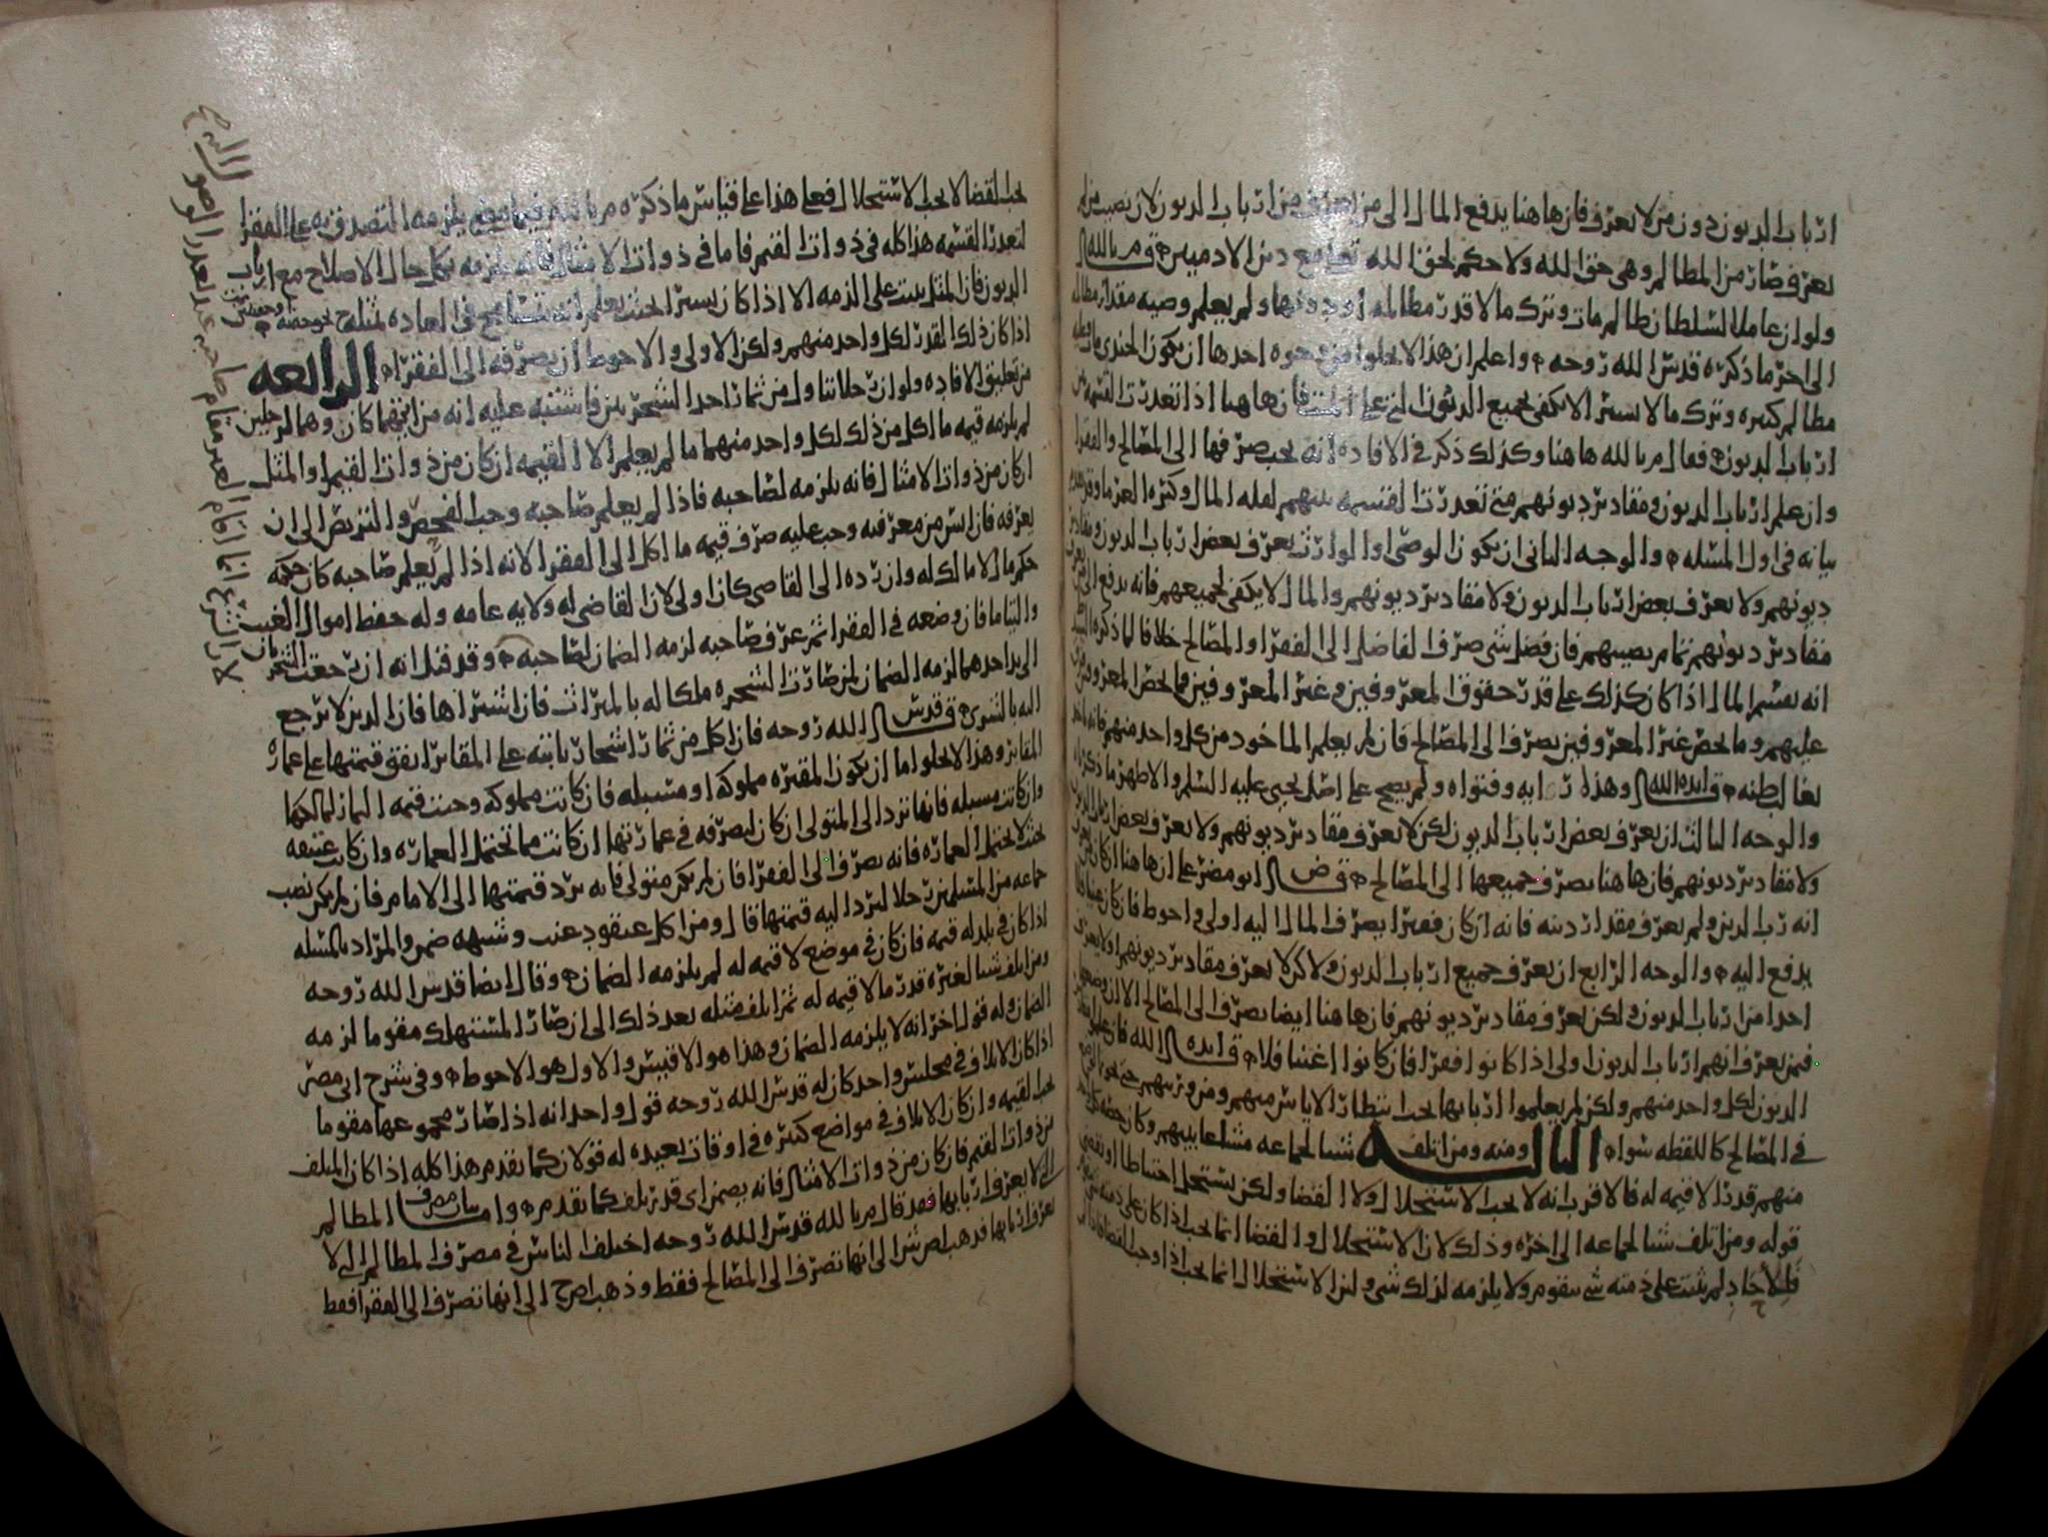 ارباب الديون دون من لا يعرف فان هاهنا يدفع المال الى من يعرف من ارباب الديون لان نصيب من لم
يعرف صار من المظالم وهي حق الله ولا حكم لحق الله تعالى مع دين الادميين قال م بالله
ولو ان عاملا لسلطان ظالم مات وترك مالا قدر مظالمه او دونها ولم يعلم وصيه مقدار مظالمه
الى اخر ما ذكره قدس الله روحه واعلم ان هذا لا يخلوا من وجوه احدها ان يكون الجندي مات وعليه
مظالم كثيره وترك مالا يسيرا لا يكفي لجميع الديون التي على الميت فان هاهنا اذا تعذرت القسمه بين
ارباب الديون فقال م بالله هاهنا وكذلك ذكر في الافاده انه يجب صرفها الى المصالح والفقرا
وان علم ارباب الديون ومقادير ديونهم متى تعذرت القسمه بينهم لقله المال وكثره الغرما وقد تقدم
بيانه في اول المسئله والوجه الثاني ان يكون الوصي او الوارث يعرف بعض ارباب الديون ومقادير
ديونهم ولا يعرف بعض ارباب الديون ولا مقادير ديونهم والمال لا يكفي لجميعهم فانه يدفع الى من يعرف
مقادير ديونهم تمام نصيبهم فان فضل شي صرف الفاضل الى الفقرا او المصالح خلافا لما ذكره
انه يقسم المال اذا كان كذلك على قدر حقوق المعروفين وغير المعروفين فما يخص المعروفين
عليهم وما يخص غير المعروفين يصرف الى المصالح فان لم يعلم الماخوذ من كل واحد منهم فانه
بغالب ظنه قال ايده الله وهذا رايه وفتواه ولم يصح على اصل يحيى عليه السلم والاظهر ما ذكرناه
والوجه الثالث ان يعرف بعض ارباب الديون لكن لا يعرف مقادير ديونهم ولا يعرف بعض ارباب الديون
ولا مقادير ديونهم فان هاهنا يصرف جميعها الى المصالح قال ض ابو مضر على ان هاهنا ان كان
انه رب الدين ولم يعرف مقدار دينه فانه ان كان فقيرا يصرف المال اليه اولى واحوط فان كان غنيا فلا
يدفع اليه والوجه الرابع ان يعرف جميع ارباب الديون ولاكن لا يعرف مقادير ديونهم او لا يعرف
احدا من ارباب الديون ولكن يعرف مقادير ديونهم فان هاهنا ايضا يصرف الى المصالح الا ان
فمن يعرف انهم ارباب الديون اولى اذا كانوا فقرا فان كانوا اغنيا فلا قال ايده الله فان علم
الديون لكل واحد منهم ولكن لم يعلموا اربابها يجب انتظار الاياس منهم ومن ورثتهم حتى
في المصالح كاللقطه سواه الثالثه ومنه ومن اتلف شيئا لجماعه مشاعا بينهم وكان حصه كل واحد
منهم قدرا لا قيمه له فالاقرب انه لا يجب الاستحلال ولا القضا ولكن يستحل احتياطا
قوله ومن اتلف شيئا لجماعه الى اخره وذلك لان الاستحلال والقضا انما يجب اذا كان على ذمته
فلآحاد لم يثبت على ذمته شي يتقوم ولا يلزمه لذلك شي ولنا الاستحلال انما يجب اذا وجب القضا
يجب القضا لا يجب الاستحلال فعلى هذا على قياس ما ذكره م بالله فيما مضى يلزمه التصدق به على الفقرا
لتعذر القسمه هذا كله في ذوات القيم فاما في ذوات الامثال فانه يلزمه بكل حال الاصلاح مع ارباب
الديون فان المثل يثبت على الذمه الا اذا كان يسيرا بحيث يعلم انه يتسامح في العاده بمثله
اذا كان ذلك القدر لكل واحد منهم ولكن الاولى والاحوط ان يصرفه الى الفقراه الرابعه
من تعليق الافاده ولو ان رجلا تناول من ثمار احد الشجرتين فاشتبه عليه انه من ايتهما كان وهما لرجلين
لم يلزمه قيمه ما اكل من ذلك لكل واحد منهما ما لم يعلم الا القيمه ان كان من ذوات القيم او المثل
ان كان من ذوات الامثال فانه يلزمه لصاحبه فاذا لم يعلم صاحبه وجب الفحص والتربص الى ان
يعرفه فان ايس من معرفته وجب عليه صرف قيمه ما اكل الى الفقرا لانه اذا لم يعلم صاحبه كان حكمه
حكم مال لا مالك له وان رده الى القاضي كان اولى لان القاضي له ولايه عامه وله حفظ اموال الغيب
واليتاما فان وضعه في الفقرا ثم عرف صاحبه لزمه الضمان لصاحبه وقد قيل انه ان رجعت الشجرتان
الى يد احدهما لزمه الضمان لمن صارت الشجره ملكا له بالميراث فان اشتراها فان الدين لا يرجع
اليه بالشرى قال قدس الله روحه فان اكل من ثمار اشجار نابته على المقابر انفق قيمتها على عماره
المقابر وهذا لا يخلوا اما ان يكون المقبره مملوكه او مسبله فان كانت مملوكه وجبت قيمه الثمار لمالكها
وان كانت مسبله فانها ترد الى المتولى ان كان ليصرفه في عمارتها ان كانت مما تحتمل العماره وان كانت عتيقه
بحيث لا يحتمل العماره فانه يصرف الى الفقرا فان لم يكن متولى فانه يرد قيمتها الى الامام فان لم يكن نصب
جماعه من المسلمين رجلا ليرد اليه قيمتها قال ومن اكل عنقود عنب وشبهه ضمن والمراد بالمسئله
اذا كان في بلد له قيمه فان كان في موضع لا قيمه له لم يلزمه الضمان وقال ايضا قدس الله روحه
ومن اتلف شيئا لغيره قدر ما لا قيمه له ثم اتلف مثله بعد ذلك الى ان صار المستهلك مقوما لزمه
الضمان وله قول اخر انه لا يلزمه الضمان وهذا هو الاقيس والاول هو الاحوط وفي شرح ابي مضر
اذا كان الاتلاف في مجلس واحد كان له قدس الله روحه قول واحد انه اذا صار مجموعها مقوما
يجب القيمه وان كان الاتلاف في مواضع كثيره في اوقات بعيده له قولان كما تقدم هذا كله اذا كان المتلف
من ذوات القيم فان كان من ذوات الامثال فانه يضمن اي قدر تلف كما تقدم واما بيان مصرف المظالم
التي لا يعرف اربابها فقد قال م بالله قدس الله روحه اختلف الناس في مصرف المظالم التي لا
يعرف اربابها فذهب اصر ش الى انها تصرف الى المصالح فقط وذهب اصح الى انها تصرف الى الفقرا فقط